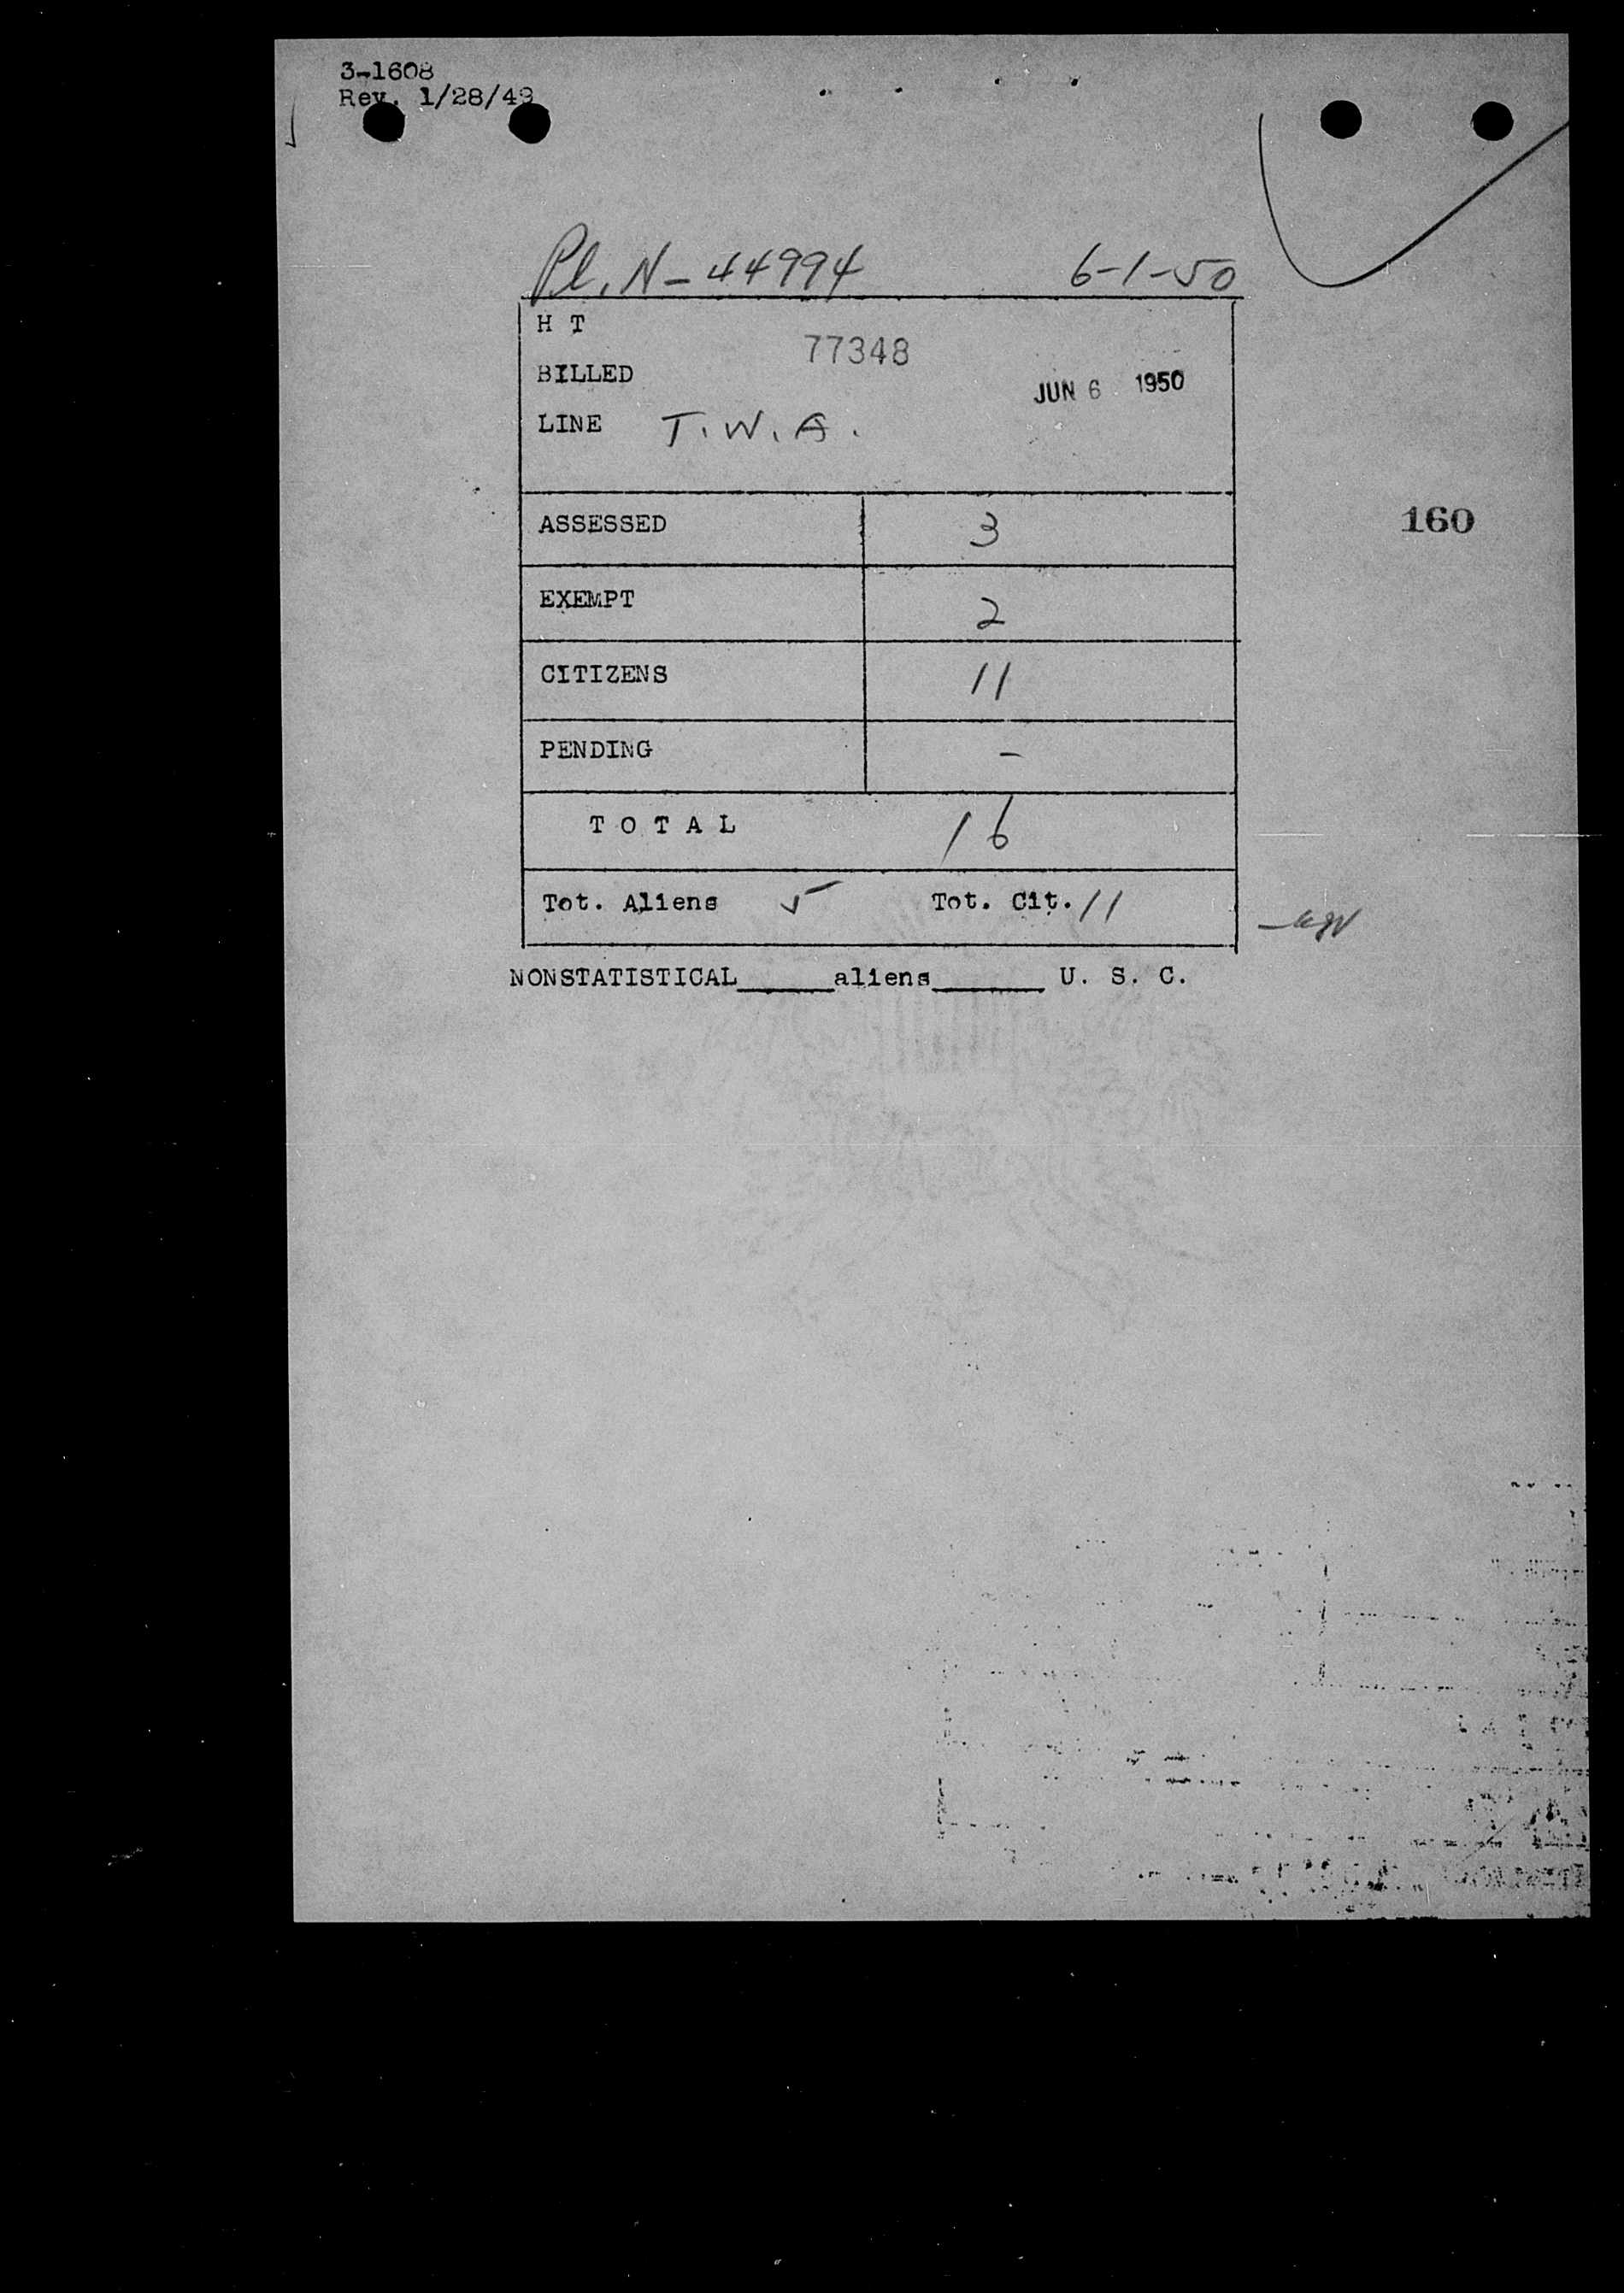 3-1608
Rev. 1/28/49
Pl. N-44994 6-1-50
H T
77348
BILLED
JUN 6 1950
LINE T.W.A.
ASSESSED 3
160
EXEMPT 2
CITIZENS 11
PENDING -
TOTAL 16
Tot. Aliens 5 Tot. Cit. 11
NONSTATISTICAL_____aliens______ U. S. C.